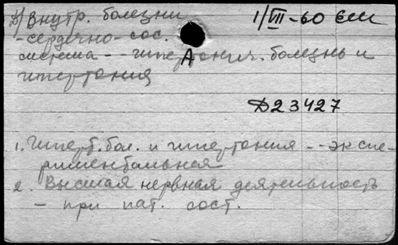 3) Внутр. болезни 1/VII-60 6 см
-сердечно-сос.
система -- гипертонич. болезнь и
А
гипертония
Д23427
1. Гиперт.бол. и гипертония -- экспе-
риментальная
2. Высшая нервная деятельность
- при пат. сост.